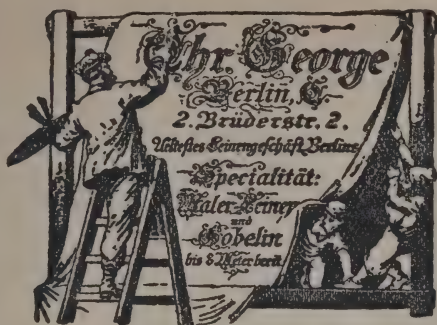 Chr. George
Berlin, C.
2. Brüderstr. 2.
Aeltestes Leinengeschäft Berlins
Specialität:
Maler-Leinen
und
Gobelin
bis 8 Meter breit